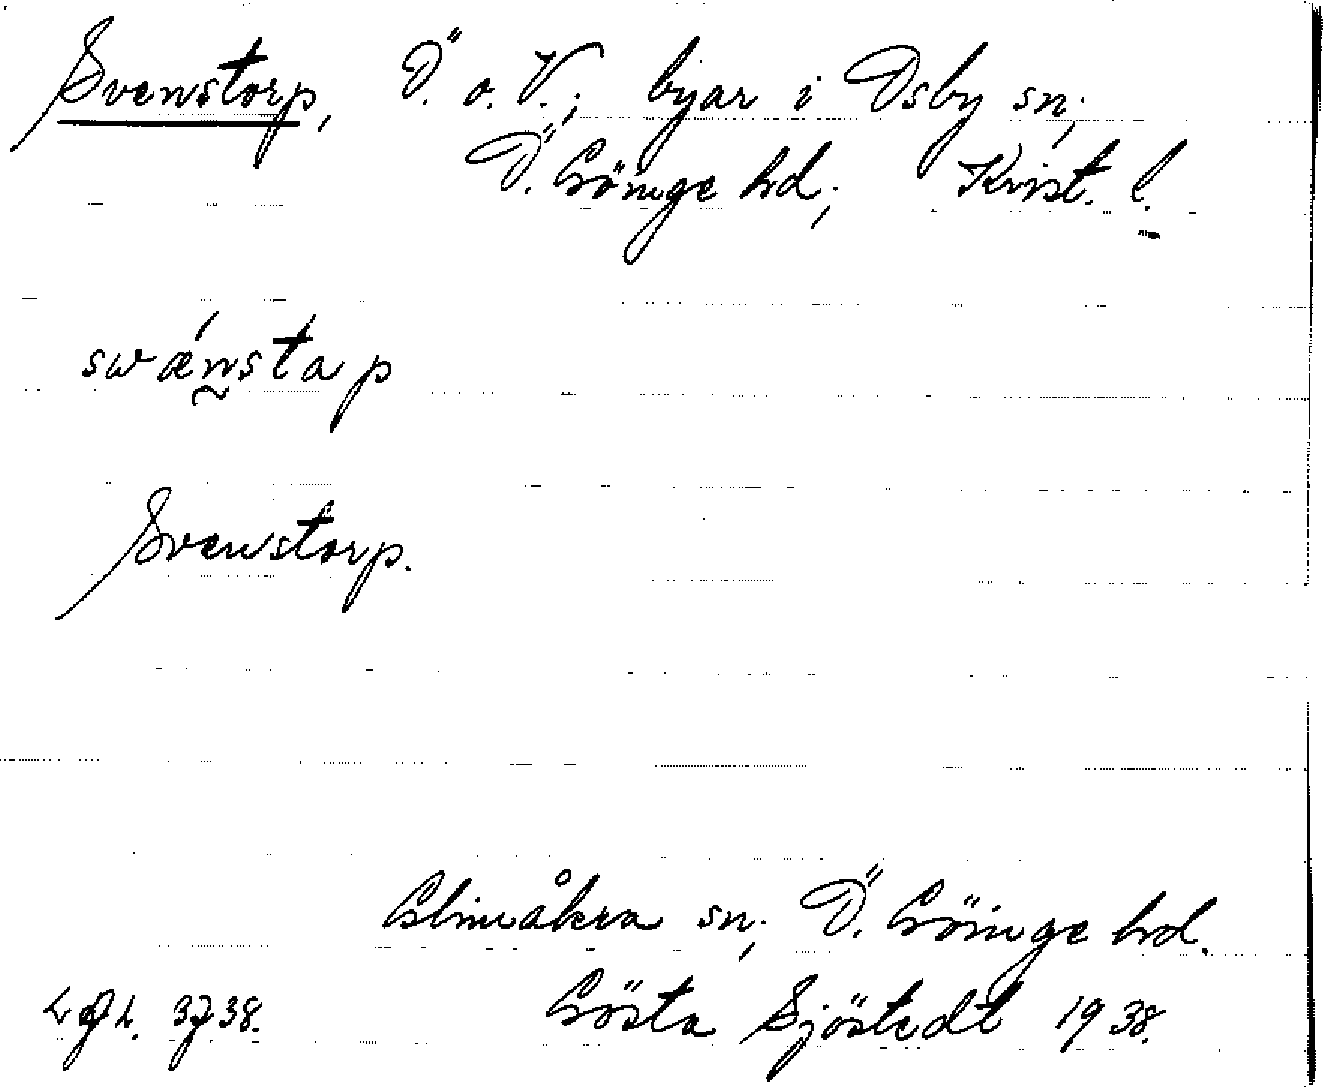 Svenstorp, Ö. o. V.; byar i Osby sn;
Ö. Göinge hd; Krist. l.
swǽnstap
Svenstorp.
Glimåkra sn; Ö. Göinge hd.
Gösta Sjöstedt 1938.